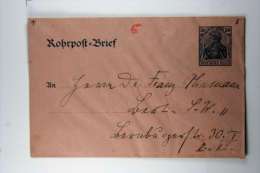 5
Rohrpost-Brief
An Herrn Dr. Franz
Berl. S.W. 11
Bernburgerstr. 30. I